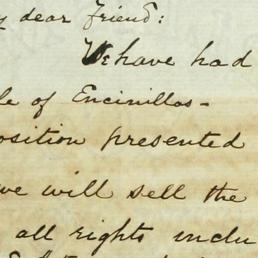 dear friend:
We have had
le of Encinillas-
osition presented
we will sell the
all rights inclu